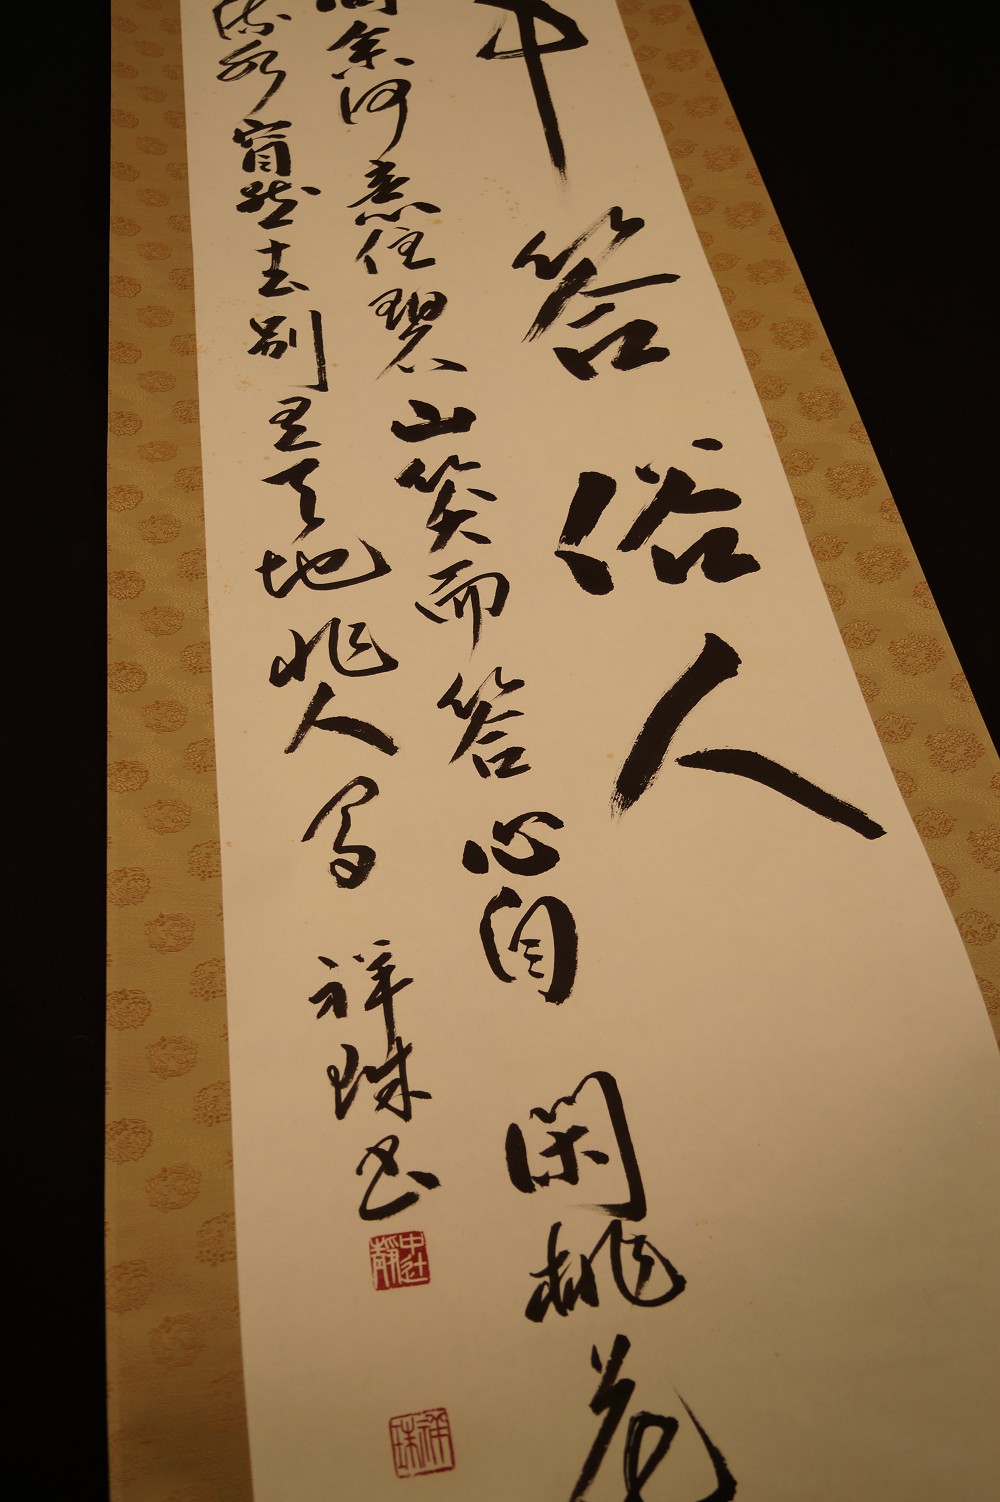 中答俗人
問余何意住碧山笑而答心自閑桃花
流水窅然去別有天地非人間 祥珠書
中辻靜
祥珠